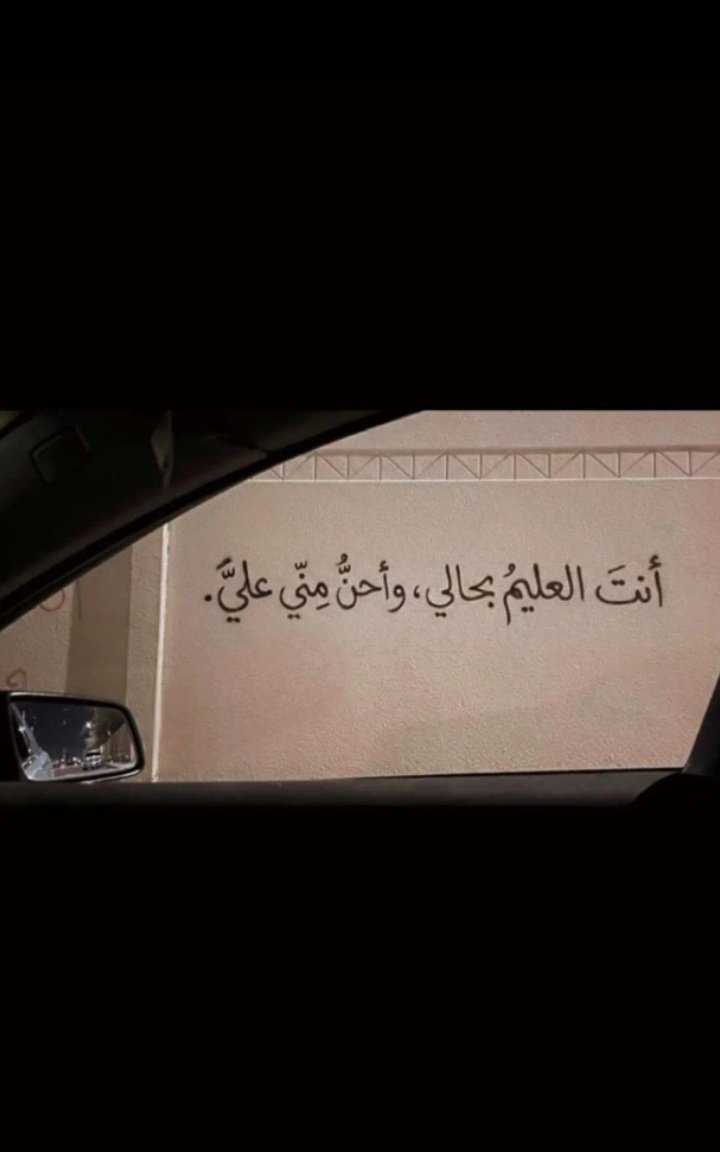 أنتَ العليمُ بحالي، وأحنُّ مِنّي عليَّ.